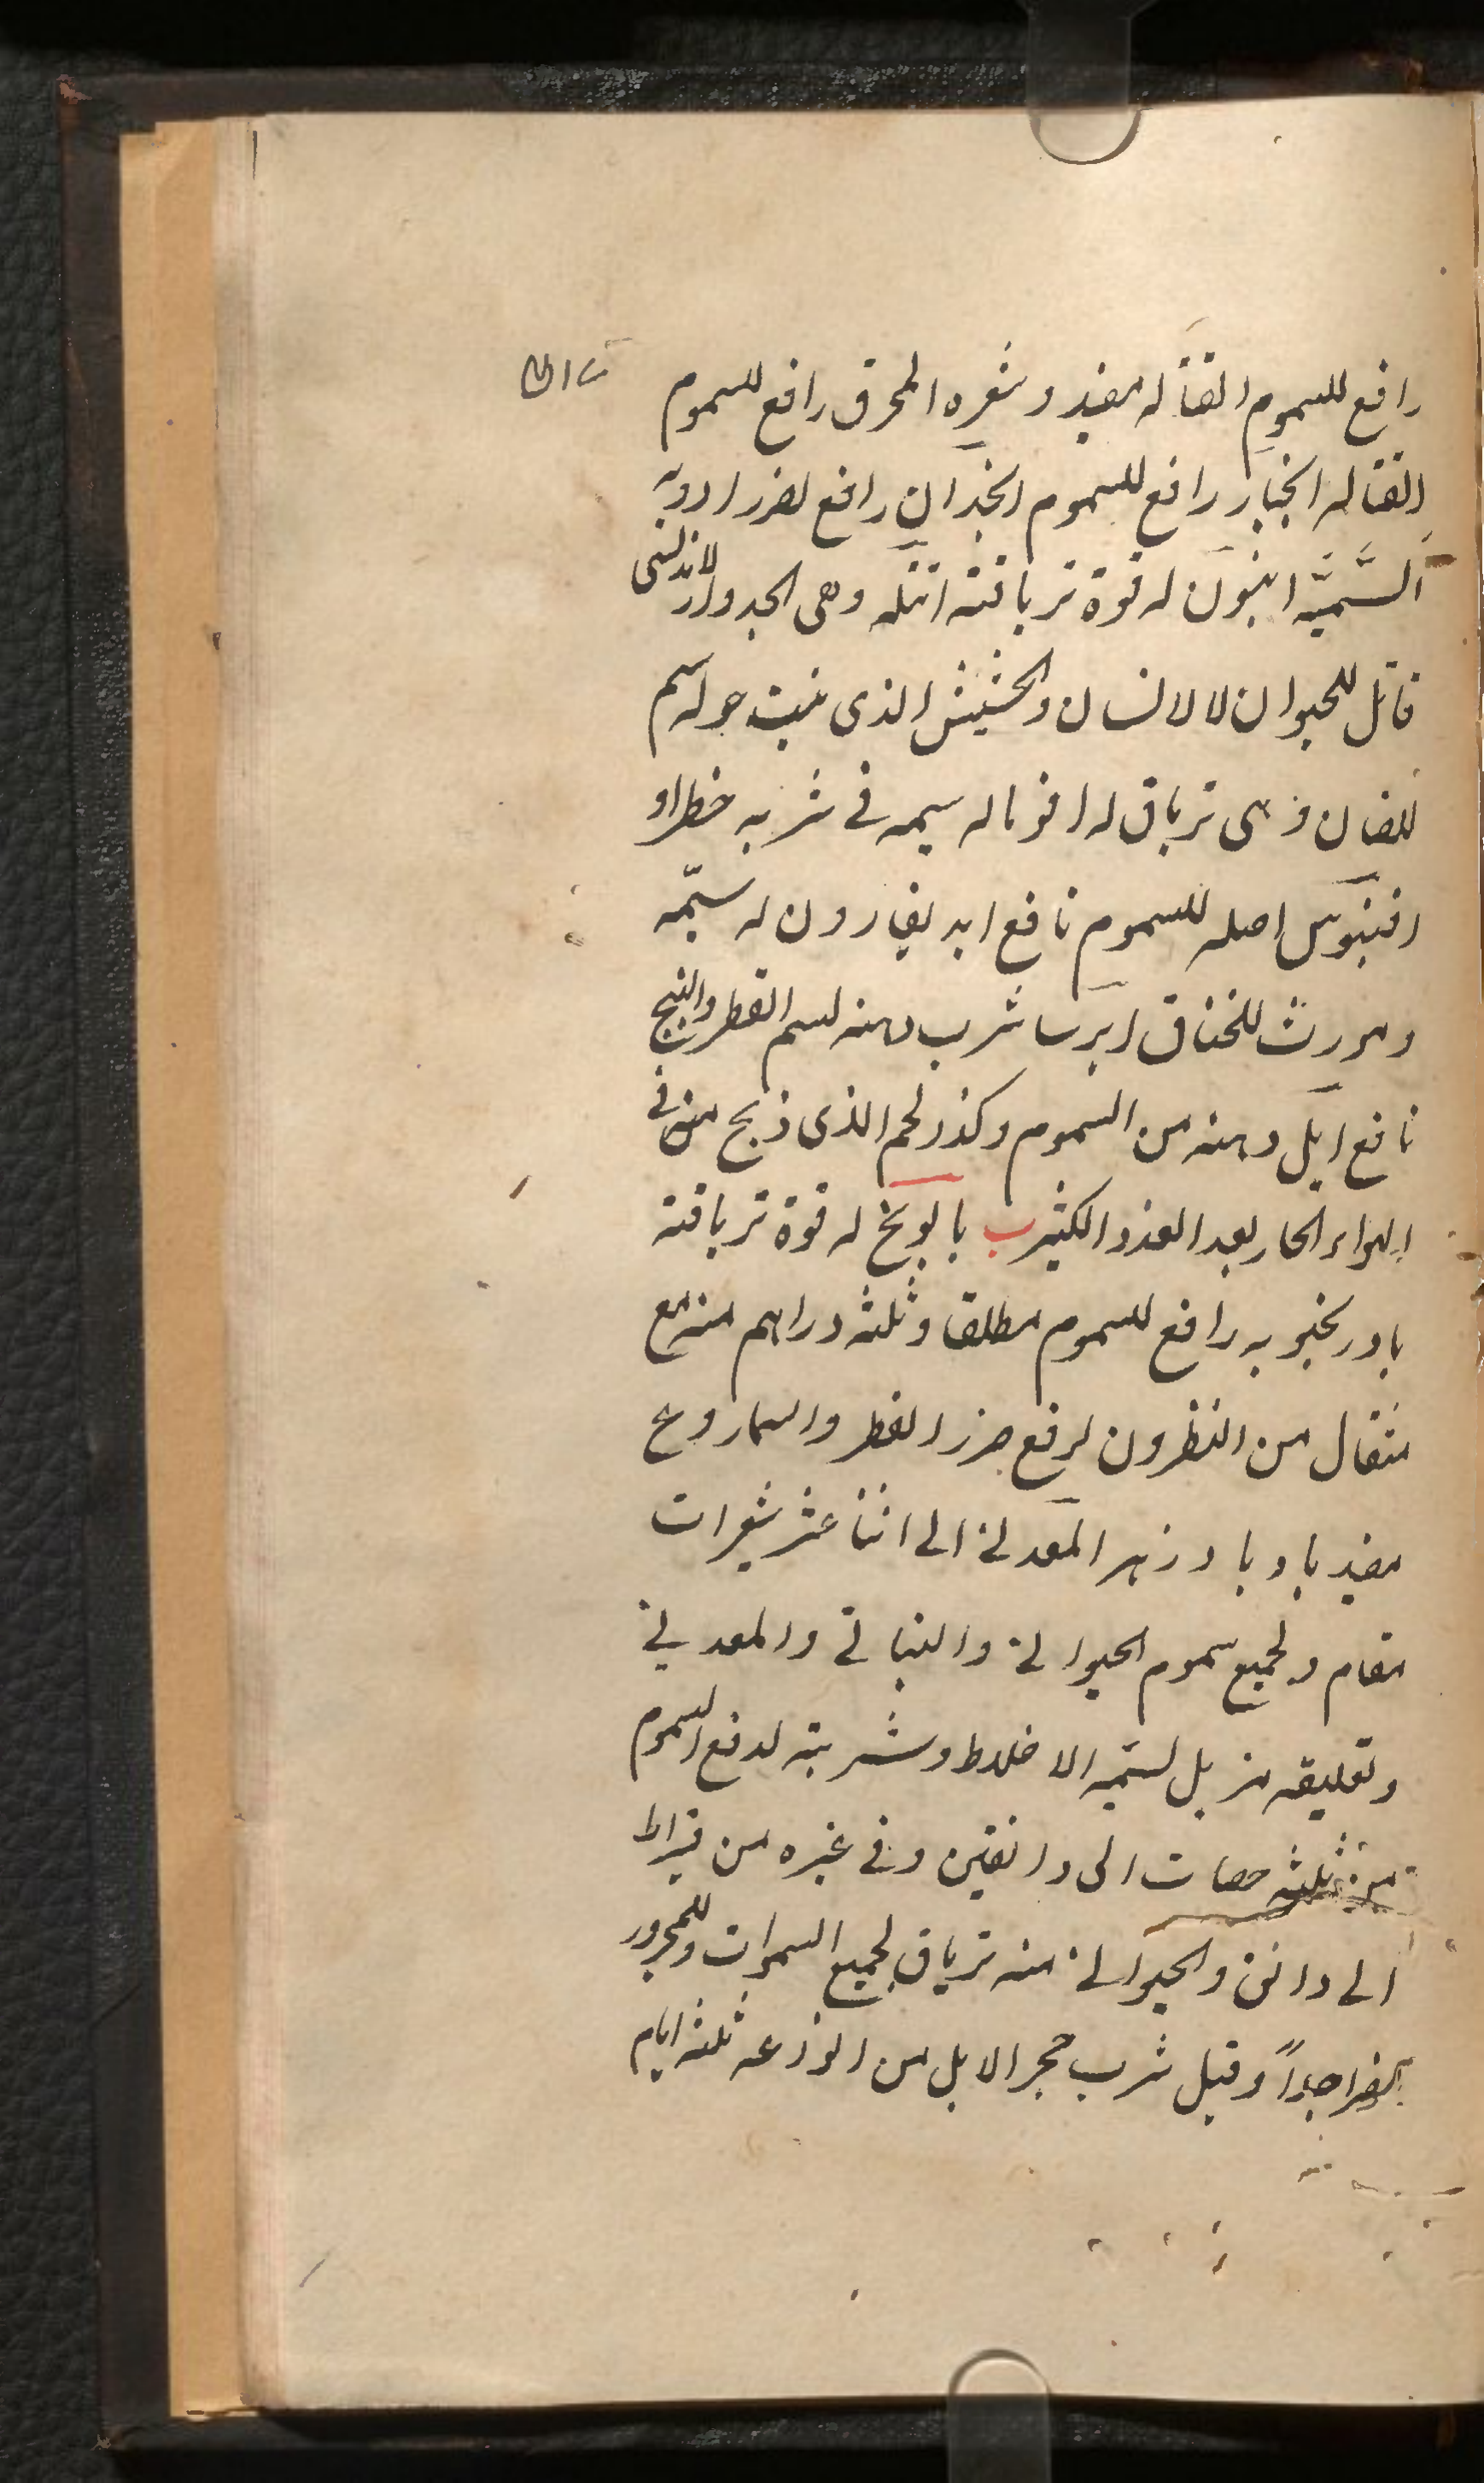 رافع للسموم القتاله مفید و شعره المحرق رافع للسموم
القتاله انجبار رافع للسموم انجدان رافع لضرر ادویه
السّمیّه انیون له قوة تریاقیته انتله وهی الجدوار الاندلسی
قاتل للحیوان لا لانسان والحشیش الذی ینبت حوله سم
للضان و هی تریاق له افونا له سمیه فی شربه خطر او
افنیوس اصله للسموم نافع ابدیغارون له سمّیه
و مورث للخناق ایرسا شرب دهنه لسم الفطر والبنج
نافع ایل دهنه من السموم و کذا لحم الذی ذبح منه فی
الهواء الحار بعد العدو الکثیر ب بابونج له قوة تریاقیه
بادرنجبویه رافع للسموم مطلقا و ثلثه دراهم منه مع
مثقال من النظرون لرفع ضرر الفطر والسماروع
مفید باد بادزهر المعدنی الی اثنا عشر شعیرات
مقام و لجمیع سموم الحیوانی والنباتی والمعدنی
و تعلیقه مزیل لسمیه الاخلاط و شربته لدفع السموم
من ثلثه حصات الی دانقین و فی غیره من قیراط
الی دانق والحیوانی منه تریاق لجمیع السموات و للمحرور
ایضا جداً و قیل شرب حجر الایل من الوزعه ثلثه ایام